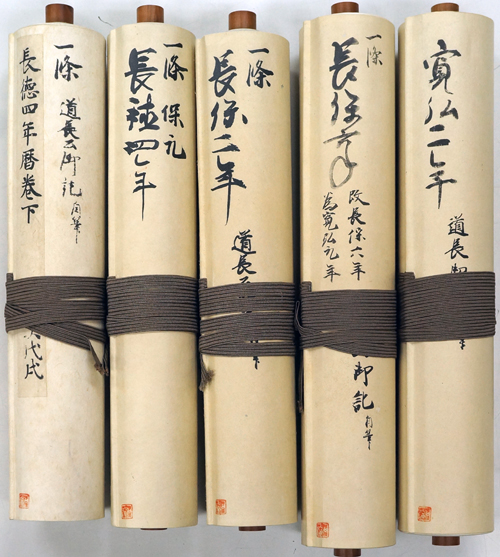 一條
道長公御記 自筆
長徳四年暦巻下
戊戌
一條 保元
長徳四年
一條
長保二年
道長
一條
長保六年
改長保六年
為寛弘元年
御記 自筆
寛弘二年
道長御